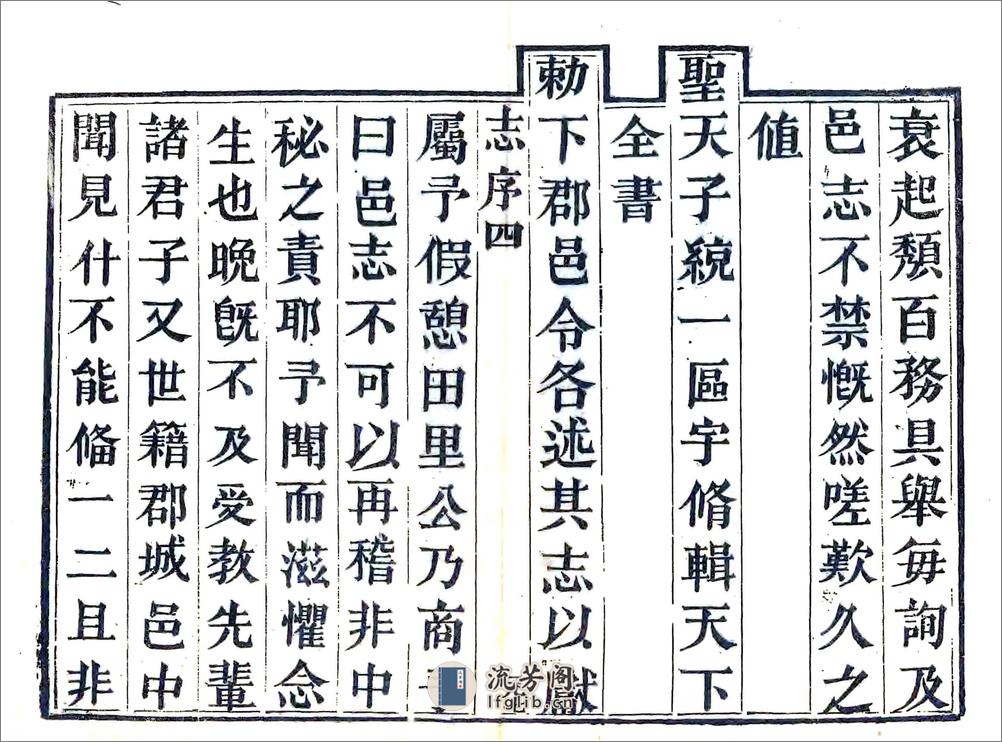 衰起頽百務具舉每詢及
邑志不禁慨然嗟歎久之
値
聖天子統一區宇脩輯天下
全書
勅下郡邑令各述其志以獻
志序四
屬予假憩田里公乃商
曰邑志不可以再稽非中
秘之責耶予聞而滋懼念
生也晚旣不及受教先輩
諸君子又世籍郡城邑中
聞見什不能備一二且非
流芳阁
lfglib.cn